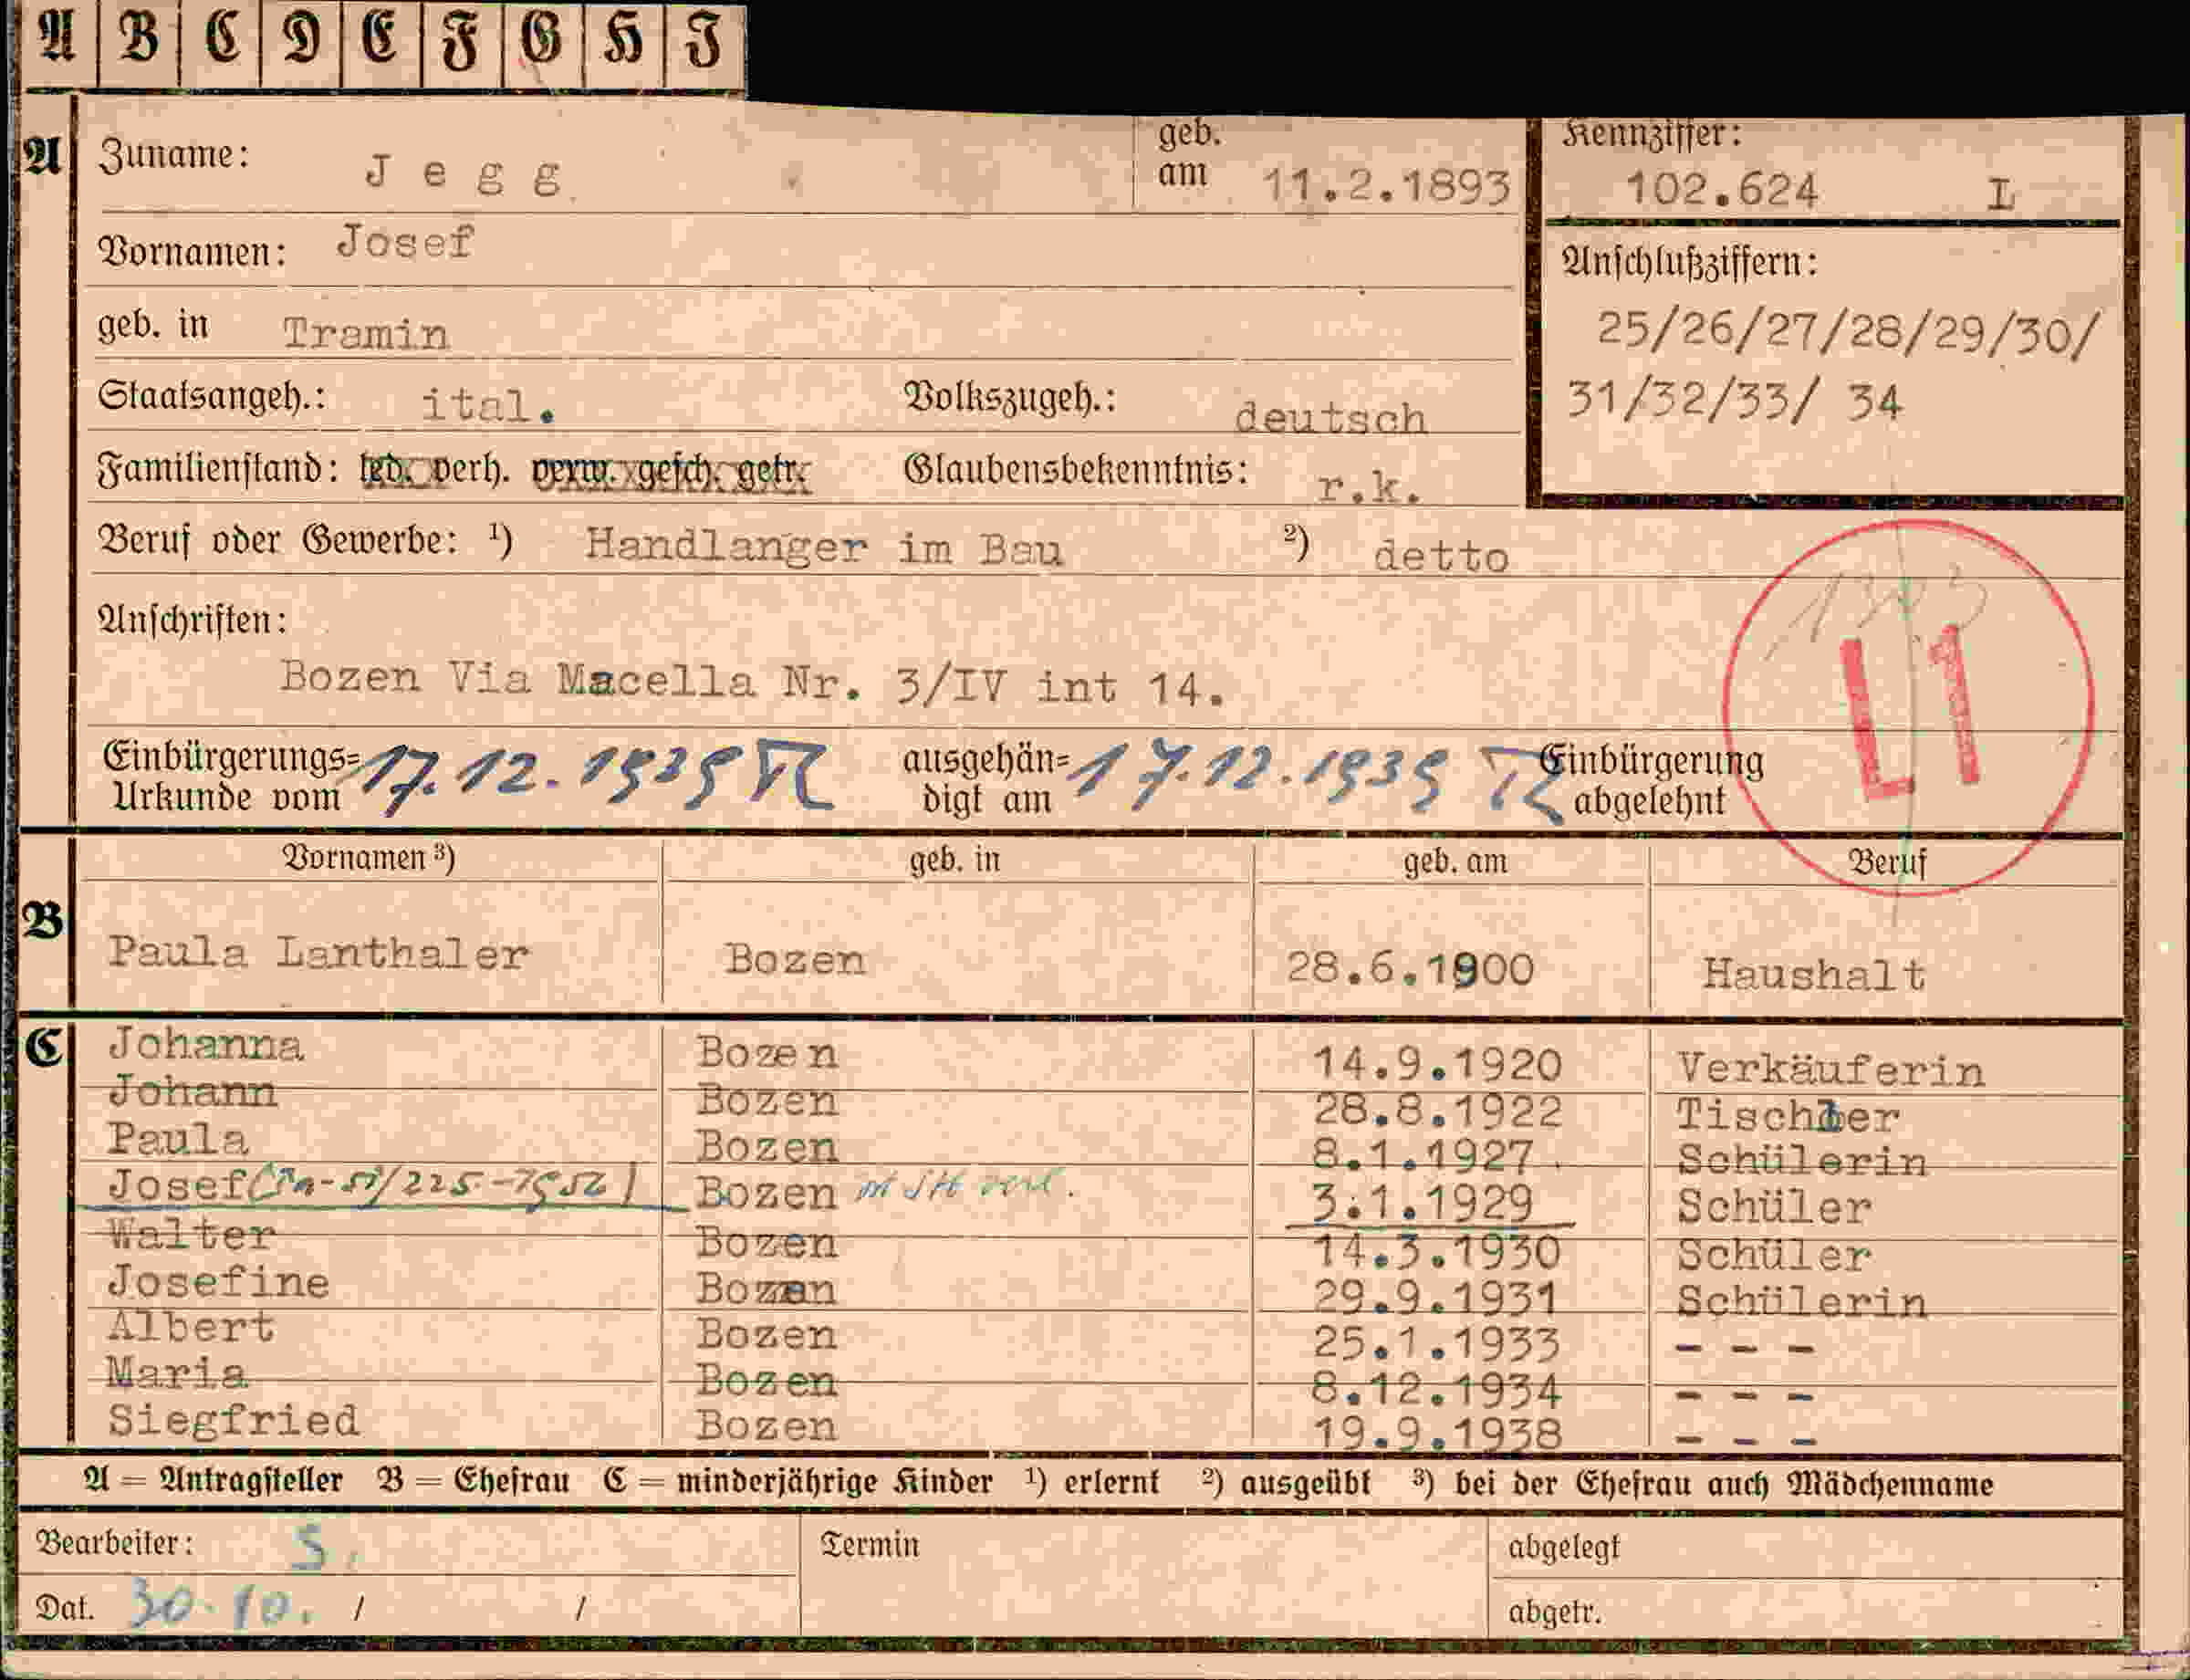 A B C D E F G H I
A Zuname: Jegg geb. am 11.2.1893 Kennziffer: 102.624 I
Vornamen: Josef
Anschlußziffern:
geb. in Tramin 25/26/27/28/29/30/
Staatsangeh.: ital. Volkszugeh.: deutsch 31/32/33/ 34
Familienstand: led. verh. verw. gesch. getr. Glaubensbekenntnis: r.k.
Beruf oder Gewerbe: ¹) Handlanger im Bau ²) detto
Anschriften:
L1
Bozen Via Macella Nr. 3/IV int 14.
Einbürgerungs= Urkunde vom 17.12.1939 ausgehän= digt am 17.12.1939 Einbürgerung abgelehnt
Vornamen ³) geb. in geb. am Beruf
B Paula Lanthaler Bozen 28.6.1900 Haushalt
C Johanna Bozen 14.9.1920 Verkäuferin
Johann Bozen 28.8.1922 Tischler
Paula Bozen 8.1.1927. Schülerin
Josef Bozen 3.1.1929 Schüler
Walter Bozen 14.3.1930 Schüler
Josefine Bozen 29.9.1931 Schülerin
Albert Bozen 25.1.1933 - - -
Maria Bozen 8.12.1934 - - -
Siegfried Bozen 19.9.1938 - - -
A = Antragsteller B = Ehefrau C = minderjährige Kinder ¹) erlernt ²) ausgeübt ³) bei der Ehefrau auch Mädchenname
Bearbeiter: S. Termin abgelegt
Dat. 30.10. / / abgetr.